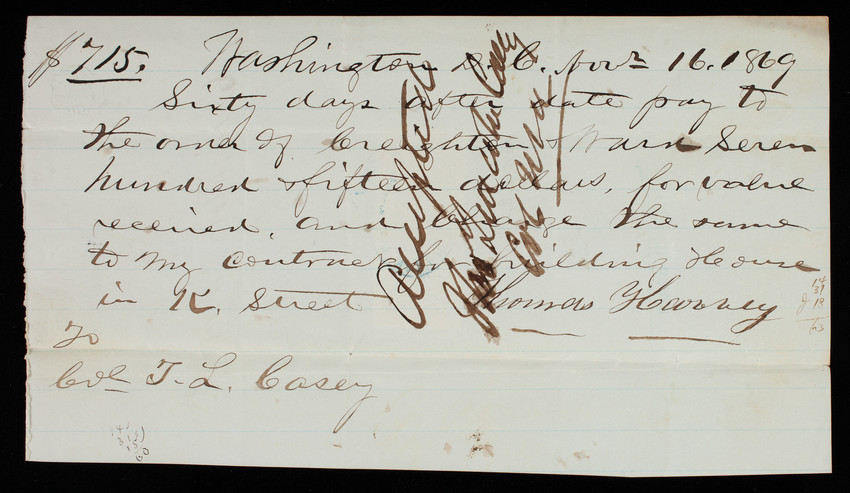 $715. Washington D.C. Novr 16. 1869
Sixty days after date pay to
the order of Creighton & Ward Seven
hundred & fifteen dollars, for value
received, and charge the same
to my contract for building House
in K. Street Thomas Harvey
To
Col T. L. Casey
Accepted
Thos Lincoln Casey
14
31
18
63